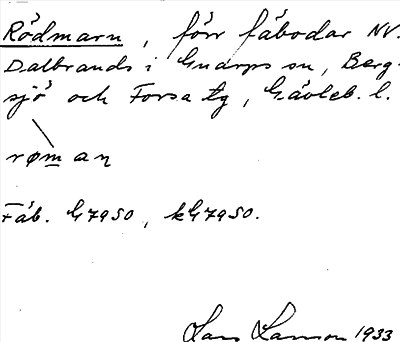 Rödmarn, förr fäbodar NV.
Dalbrands i Gnarps sn, Berg-
sjö och Forsa tg, Gävleb. l.
røman
Fäb. G7950, kG7950.
Lars Larsson 1933